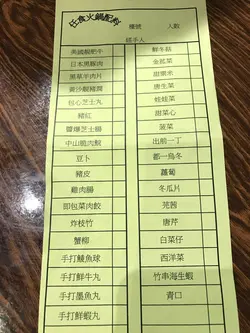 任食火鍋配料
檯號 人數
經手人
美國酸肥牛 鮮冬菇
日本黑豚肉 金菰菜
黑草羊肉片 甜粟米
黃沙豬膶 唐生菜
包心芝士丸 娃娃菜
豬紅 甜菜心
醬爆芝士腸 菠菜
中山脆肉鯇 出前一丁
豆卜 都一烏冬
豬皮 蘿蔔
雞肉腸 冬瓜片
即包菜肉餃 芫茜
炸枝竹 唐芹
蟹柳 白菜仔
手打鯪魚球 西洋菜
手打鮮牛丸 竹串海生蝦
手打墨魚丸 青口
手打鮮蝦丸